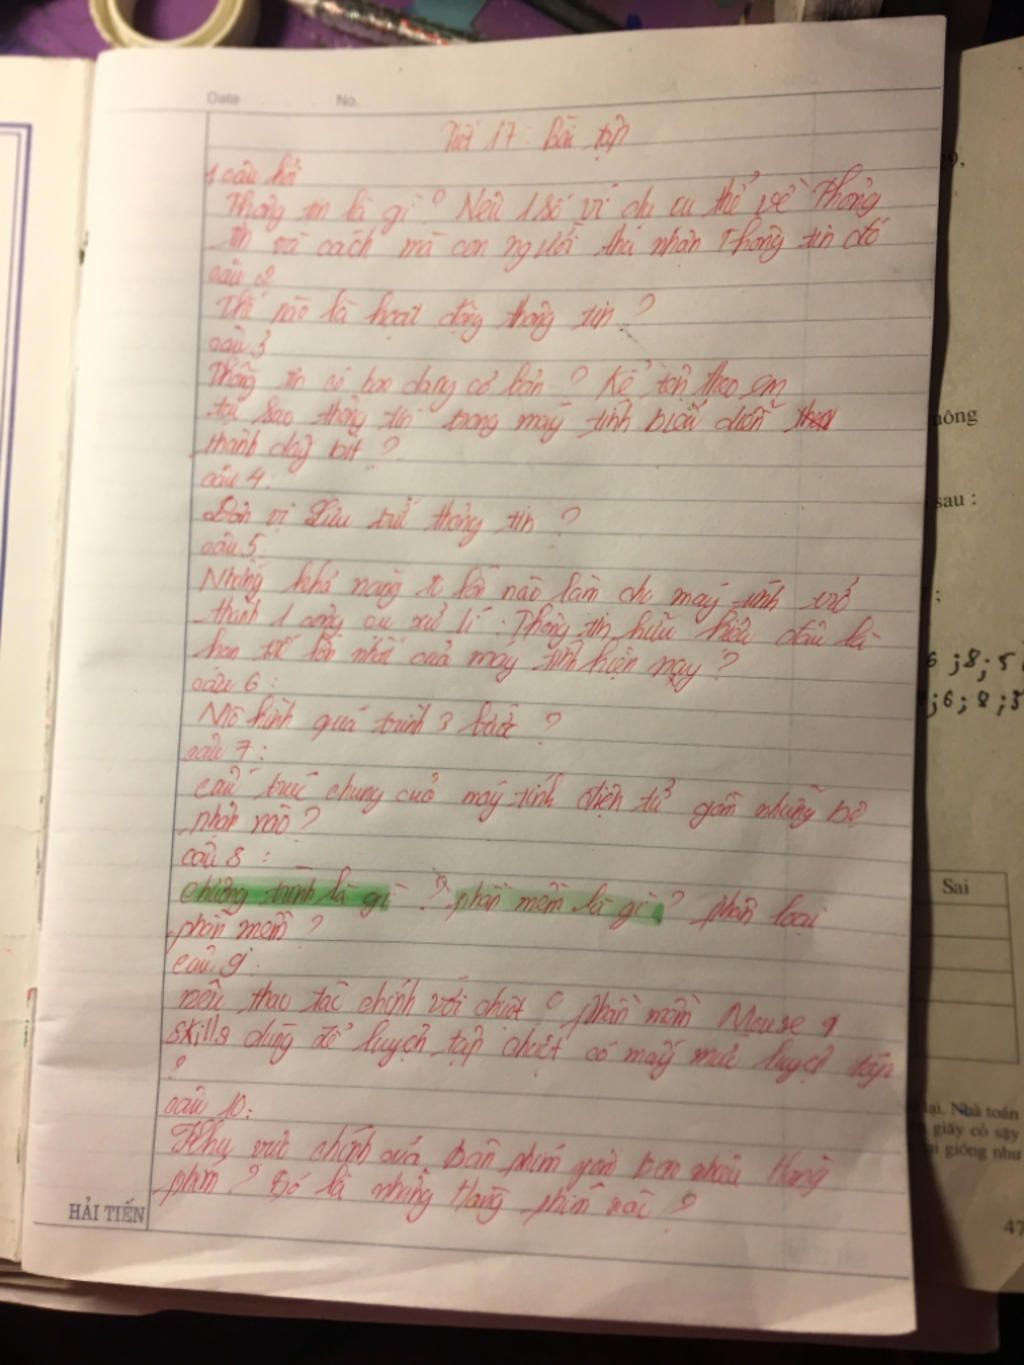 Date No.
Tiết 17: Bài tập
1 câu hỏi
Thông tin là gì? Nêu 1 số ví dụ cụ thể về Thông
tin và cách mà con người thu nhận Thông tin đó
câu 2
Thế nào là hoạt động thông tin?
câu 3
Thông tin có bao dạng cơ bản? Kể tên theo em
tại sao thông tin trong máy tính biểu diễn theo
thành dãy bit?
câu 4:
Đơn vị Lưu trữ thông tin?
câu 5:
Những khả năng to lớn nào làm cho máy tính trở
thành 1 công cụ xử lí Thông tin hữu hiệu đâu là
hạn chế lớn nhất của máy tính hiện nay?
câu 6:
Mô hình quá trình 3 bước?
câu 7:
cấu trúc chung của máy tính điện tử gồm những bộ
phận nào?
câu 8:
chương trình là gì? phần mềm là gì? phân loại
phần mềm?
câu 9:
nêu thao tác chính với chuột? phần mềm Mouse
skills dùng để luyện tập chuột có mấy mức luyện tập
?
câu 10:
Khu vực chính của Bàn phím gồm bao nhiêu Hàng
phím? Đó là những Hàng phím nào?
HẢI TIẾN
sau :
6 ;8; 5
;6; 8 ;5
Sai
lại. Nhà toán
giấy có sậy
giống như
47